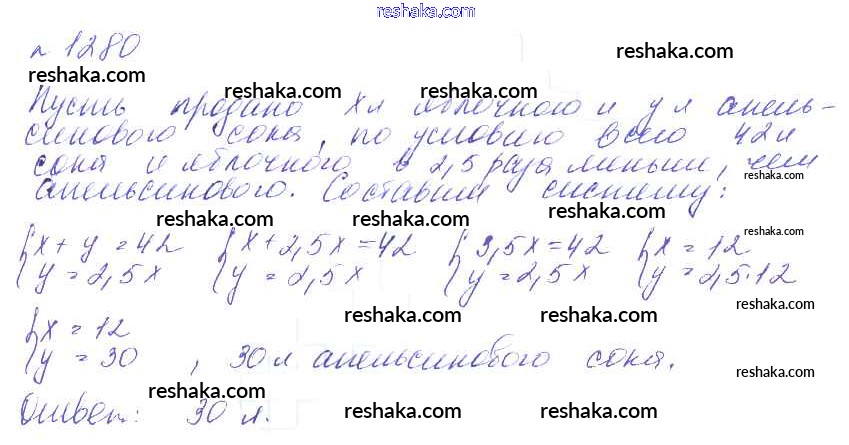 reshaka.com
№ 1280
reshaka.com
reshaka.com
reshaka.com reshaka.com
Пусть продано x л яблочного и y л апель-
синового сока, по условию всего 42 л
сока и яблочного в 2,5 раза меньше, чем
reshaka.com
апельсинового. Составим систему:
reshaka.com reshaka.com reshaka.com
reshaka.com
{x + y = 42 {x + 2,5x = 42 {3,5x = 42 {x = 12
{y = 2,5x {y = 2,5x {y = 2,5x {y = 2,5·12
reshaka.com reshaka.com
{x = 12
{y = 30 , 30 л апельсинового сока.
reshaka.com
reshaka.com
Ответ: 30 л.
reshaka.com reshaka.com reshaka.com